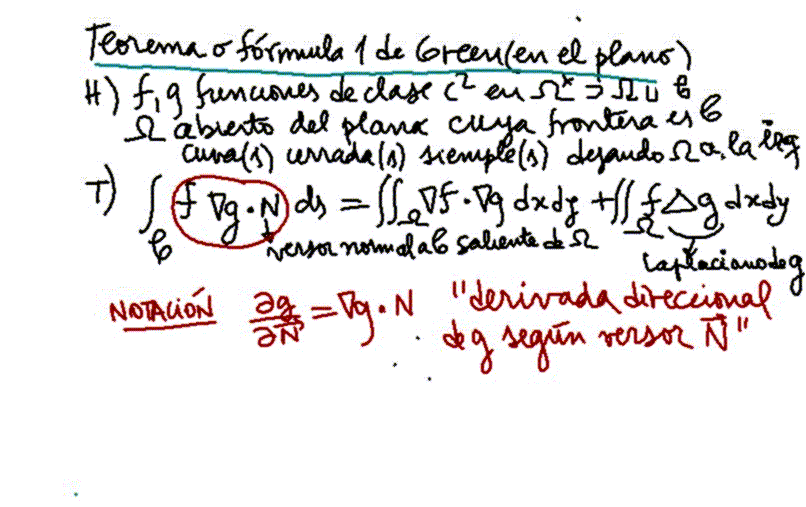 Teorema o fórmula 1 de Green (en el plano)
H) f, g funciones de clase C² en Ω* ⊃ Ω ∪ C
Ω abierto del plano cuya frontera es C
curva(s) cerrada(s) simple(s) dejando Ω a la izq
T) ∫_C f ∇g · N ds = ∬_Ω ∇f · ∇g dxdy + ∬_Ω f Δg dxdy
versor normal a C saliente de Ω
Laplaciano de g
NOTACIÓN ∂g/∂N⃗ = ∇g · N "derivada direccional
de g según versor N⃗"